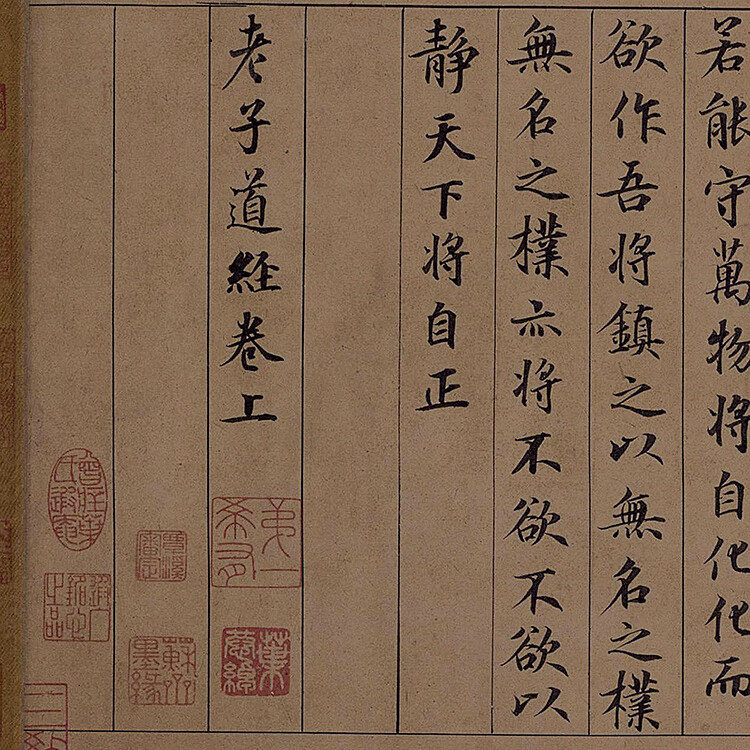 若能守萬物將自化化而
欲作吾將鎮之以無名之樸
無名之樸亦將不欲不欲以
靜天下將自正
老子道經卷上